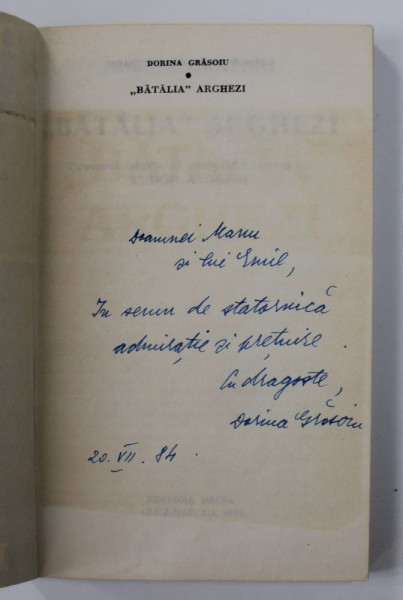 DORINA GRĂSOIU
●
„BĂTĂLIA” ARGHEZI
Doamnei Manu
și lui Emil,
În semn de statornică
admirație și prețuire.
Cu dragoste,
Dorina Grăsoiu
20. VII. 84.